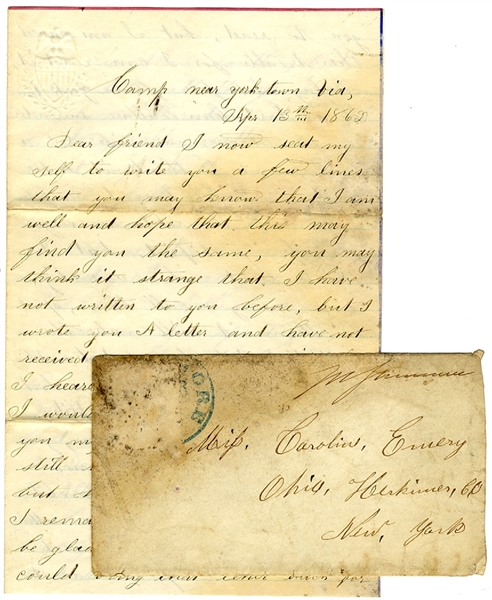 Camp near york town Via,
Apr 13th 1862
Dear friend I now seat my
self to write you a few lines
that you may know that I am
well and hope that this may
find you the same, you may
think it strange that I have
not written to you before, but I
wrote you A letter and have not
received
I heard
I would
you my
still
but
I rema
be glad
could
ORK
Miss, Caroline, Emery
Ohio, Herkimer, CO
New, York